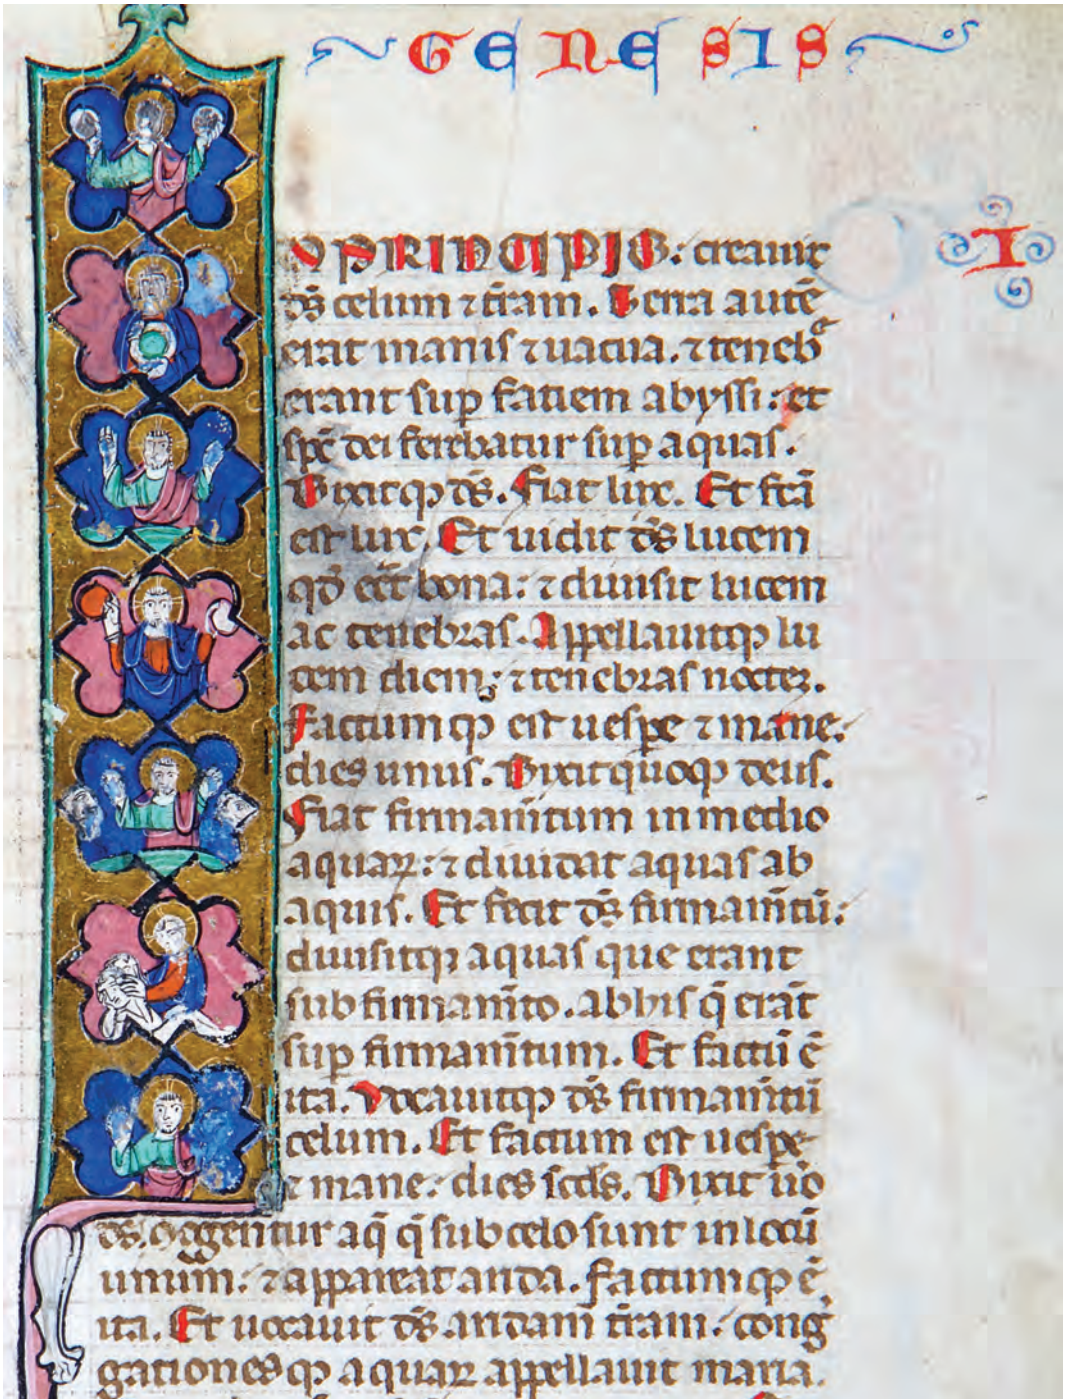 GENESIS
I
N PRINCIPIO: creauit
ds̄ celum ⁊ t̄ram. Terra autē
erat inanis ⁊ uacua. ⁊ tenebᵃ
erant sup faciem abyssi: et
sp̄c dei ferebatur sup aquas.
Dixitqꝫ ds̄. Fiat lux. Et fc̄a
est lux. Et uidit ds̄ lucem
qd̄ eēt bona: ⁊ diuisit lucem
ac tenebras. Appellauitqꝫ lu
cem diem: ⁊ tenebras nocteꝫ.
Factumqꝫ est uespe ⁊ mane:
dies unus. Dixit quoqꝫ deus.
Fiat firmam̄tum in medio
aquaꝝ: ⁊ diuidat aquas ab
aquis. Et fecit ds̄ firmam̄tū:
diuisitqꝫ aquas que erant
sub firmam̄to. ab his q̄ erāt
sup firmam̄tum. Et factū ē
ita. Vocauitqꝫ ds̄ firmam̄tū
celum. Et factum est uespe
⁊ mane: dies scd̄s. Dixit ūo
ds̄. Cōggentur aq̄ q̄ sub celo sunt in locū
unum: ⁊ appareat arida. factumqꝫ ē
ita. Et uocauit ds̄ aridam t̄ram: cong̓
gationesqꝫ aquaꝝ appellauit maria.